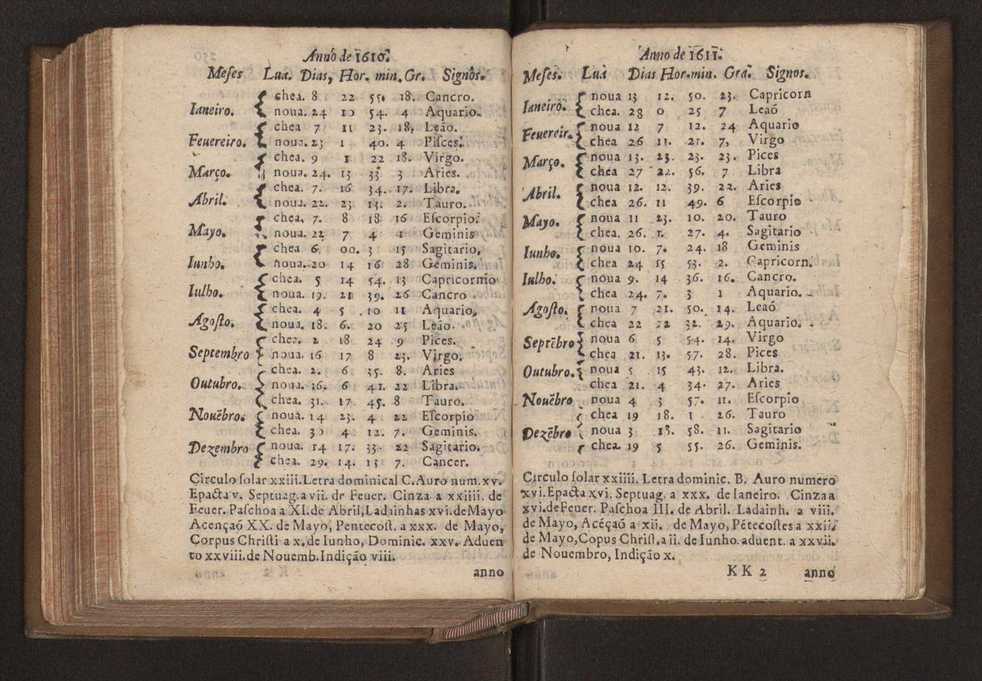 Anno de 1610.
Meses Lua. Dias, Hor. min. Gr. Signos.
Ianeiro. chea. 8 22 55. 18. Cancro.
noua. 24 10 54. 4 Aquario.
Feuereiro. chea 7 11 23. 18, Leão.
noua. 23 1 40. 4 Piſces.
Março. chea. 9 1 22 18. Virgo.
noua. 24. 13 33 3 Aries.
Abril. chea. 7. 16 34. 17. Libra.
noua. 22. 23 13. 2. Tauro.
Mayo. chea, 7. 8 18 16 Eſcorpio.
noua. 22 7 4 1 Geminis
Iunho. chea 6 00. 3 15 Sagitario,
noua. 20 14 16 28 Geminis.
Iulho. chea. 5 14 54. 13 Capricornio
noua. 19. 21 39. 26 Cancro
Agoſto. chea. 4 5 10 11 Aquario,
noua. 18. 6. 20 25 Leão.
Septembro chea. 2 18 24 9 Pices.
noua. 16 17 8 23. Virgo.
Outubro. chea. 2. 6 35. 8. Aries
noua. 16. 6 41. 22 Libra.
chea. 31. 17 45. 8 Tauro.
Nouẽbro. noua. 14 23. 4 22 Eſcorpio
chea. 30 4 12. 7. Geminis.
Dezembro noua. 14 17. 33 22 Sagitario.
chea. 29. 14. 13 7. Cancer.
Circulo ſolar xxiii. Letra dominical C. Auro num. xv.
Epacta v. Septuag. a vii. de Feuer. Cinza a xxiiii. de
Feuer. Paſchoa a XI. de Abril, Ladainhas xvi. de Mayo
Acençaõ XX. de Mayo, Pentecoſt. a xxx. de Mayo,
Corpus Chriſti a x. de Iunho, Dominic. xxv. Aduen
to xxviii. de Nouemb. Indição viii.
anno
Anno de 1611.
Meſes. Lua Dias Hor. min. Gra. Signos.
Ianeiro. noua 13 12. 50. 23. Capricorn
chea. 28 0 25 7 Leaó
Feuereir. noua 12 7 12. 24 Aquario
chea 26 11. 21. 7, Virgo
Março. noua 13. 23. 23. 23. Pices
chea 27 22. 56. 7 Libra
Abril. noua 12. 12. 39. 22. Aries
chea 26. 11 49. 6 Eſcorpio
Mayo. noua 11 23. 10. 20. Tauro
chea, 26. 1. 27. 4. Sagitario
Iunho. noua 10. 7. 24. 18 Geminis
chea 24 15 53. 2. Capricorn.
Iulho. noua 9. 14 36. 16. Cancro.
chea 24. 7. 3 1 Aquario.
Agoſto. noua 7 21. 50. 14. Leaó
chea 22 22 32. 29. Aquario.
Septẽbro noua 6 5 54. 14. Virgo
chea 21. 13. 57. 28. Pices
Outubro. noua 5 15 43. 12. Libra.
chea 21. 4 34. 27. Aries
Nouẽbro noua 4 3 57. 11. Eſcorpio
chea 19 18. 1 26. Tauro
Dezẽbro noua 3 18. 58. 11. Sagitario
chea. 19 5 55. 26. Geminis.
Circulo ſolar xxiiii. Letra dominic. B. Auro numero
xvi. Epacta xvi. Septuag. a xxx. de Ianeiro. Cinza a
xvi. de Feuer. Paſchoa III. de Abril. Ladainh. a viii.
de Mayo, Acéçaõ a xii. de Mayo, Pẽtecoſtes a xxii.
de Mayo, Copus Chriſt. a ii. de Iunho. aduent. a xxvii.
de Nouembro, Indição x.
KK 2 anno